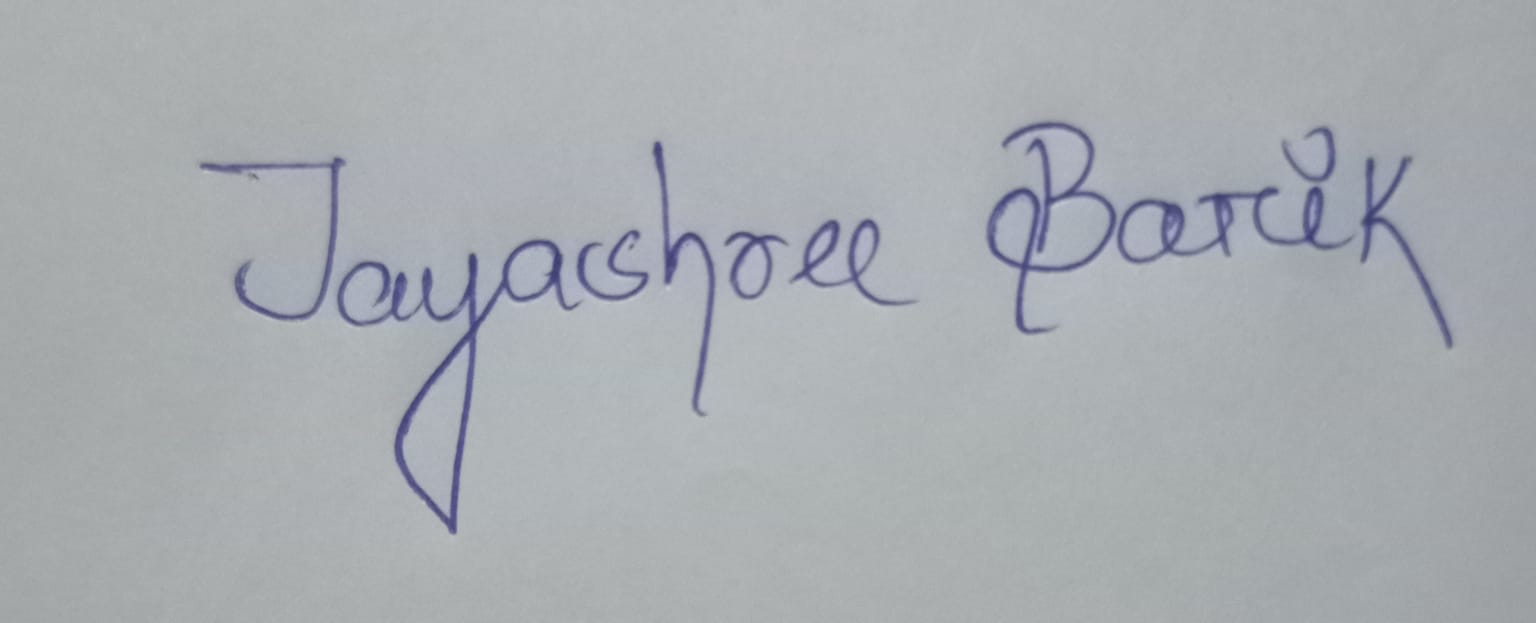 Jayashree Barik